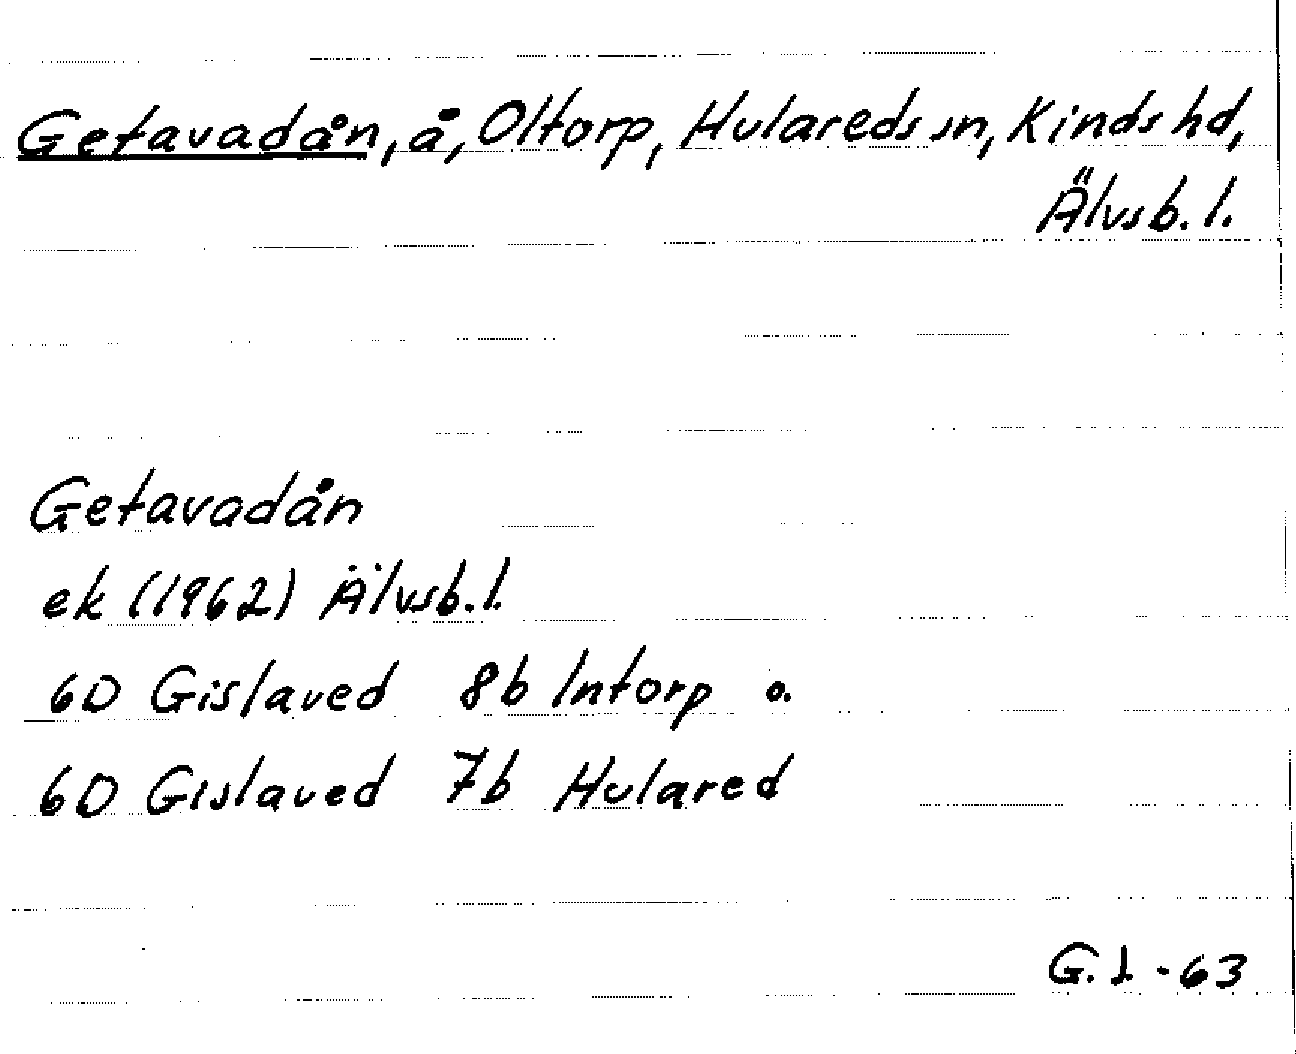 Getavadån, å, Oltorp, Hulareds sn, Kinds hd,
Älvsb. l.
Getavadån
ek (1962) Älvsb. l.
6D Gislaved 8b Intorp o.
6D Gislaved 7b Hulared
G. I - 63